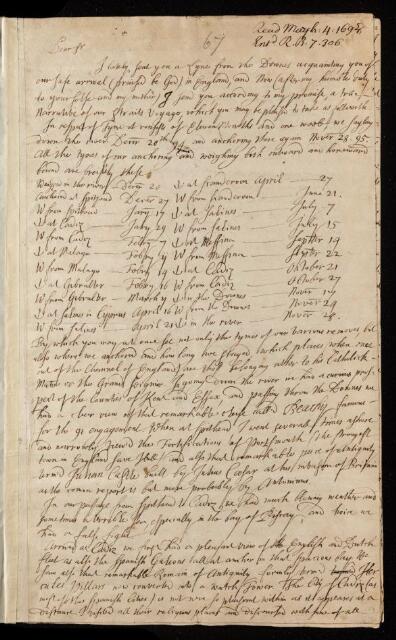 Read March. 4. 1695/6
Entd R. B. 7. 306
67
Dear Sr
I lately sent you a Lyne from the Downs acquainting you of
our safe arrival (praised be God) in England, and Now (after my humble duty
to your selfe and my mother) I send you according to my promise a true
Narrative of our Straits Voyage, which you may be pleased to take as followeth
In respect of tyme it consists of Eleven Months and one week: we sayling
down the river Decr 20th and anchoring there again Novr 28. 95.
All the tymes of our anchoring and weighing both outward and homeward
bound are breifly these
Weighed in the river Decr 20
Anchored at Spithead Decer 27
W from Spithead Jany 17
at Cadiz Jany 29
W from Cadiz Febry 7
at Malago Febry 9
W from Malago Febry 14
at Gibralter Febry 16
W from Gibralter March 9
at Salines in Cyprus April 16
W from Salines April 21
at Scanderoon April 27
W from Scanderoon June 21
at Salines July 7
W from Salines July 15
at Messina Septbr 14
W from Messina Septbr 22
at Cadiz Octobr 21
W from Cadiz Octobr 27
in the Downs Novbr 14
W from the Downs Novbr 24
in the river Novbr 28
By which you may at once see not only the tymes of our various removes but
also where we anchored and how long we stayed, which places when once
out of the Channel of England are all belonging either to his Catholick
Matie or the Grand Seignior. In going down the river we had a curious pros-
pect of the Counties of Kent and Essex, and passing thorow the Downes we
had a clear view of that remarkable cliffe called Beachy famous
for the 91 engagement. When at Spithead I went several times ashore
and narrowly view'd the Fortifications of Portsmouth (the strongest
town in England save Hull) and also that remarkable piece of antiquity
termed Julian Castle built by Julius Caesar at his invasion of Brittain
as the comon report is but more probably by Antoninus.
In our passage from Spithead to Cadiz we had much blowing weather and
sometimes terrible too, especially in the bay of Biscay, and twice we
had a false fight
Arriving at Cadiz we first had a pleasant view of the English and Dutch
fleet as also the Spanish Galeons all at anchor in that spacious bay. We
saw also that remarkable Remain of Antiquity formerly termed Her-
cules Pillars now converted into a watch Tower. The City of Cadiz (as
most of the Spanish Cities) is not near so pleasant within as it appears at a
distance. I visited all their religious places and discoursed with some of all